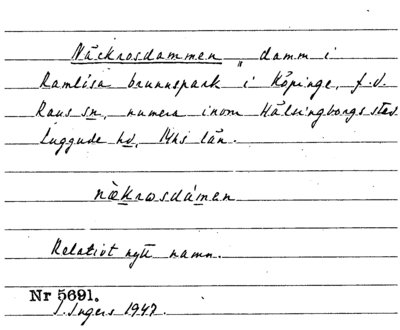 Näckrosdammen, damm i
Ramlösa brunnspark i Köpinge, f.d.
Raus sn, numera inom Hälsingborgs stad
Luggude hd, Mhs län.
nækrωsdámen
Relativt nytt namn.
Nr 5691.
I. Ingers 1947.